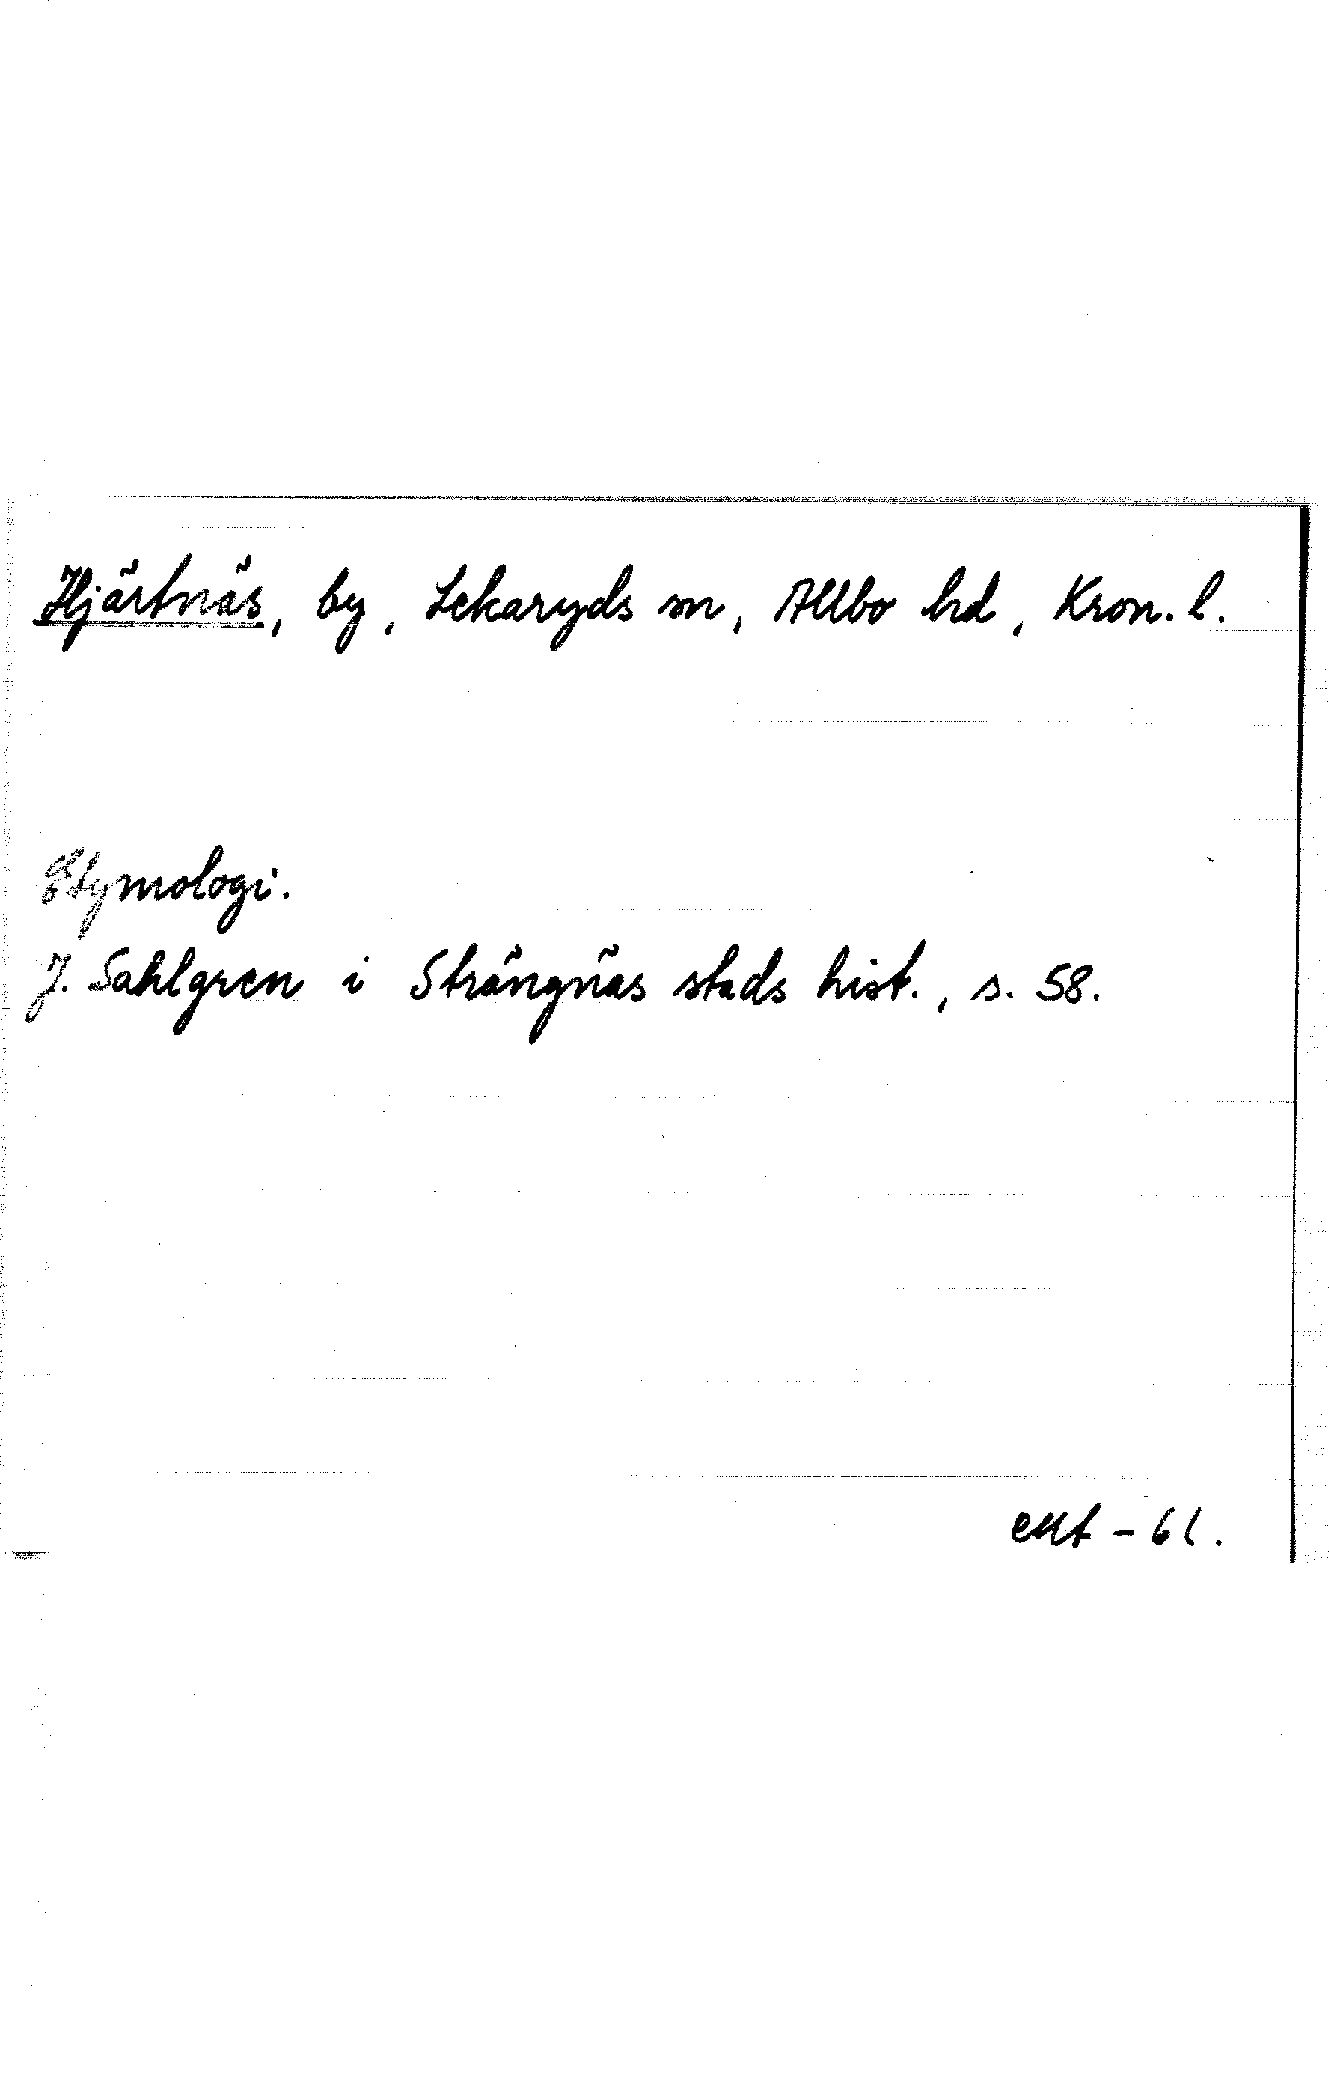 Hjärtnäs, by, Lekaryds sn, Allbo hd, Kron. l.
Etymologi.
J. Sahlgren i Strängnäs stads hist., s. 58.
- 61.